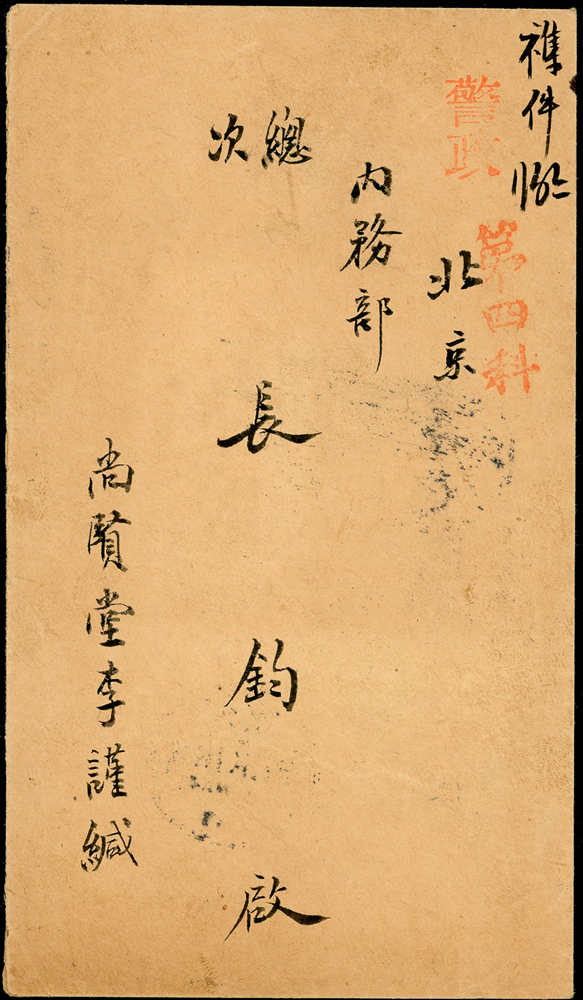 件
警政
第四科
北京
内務部
總次長鈞啟
尚賢堂李謹緘